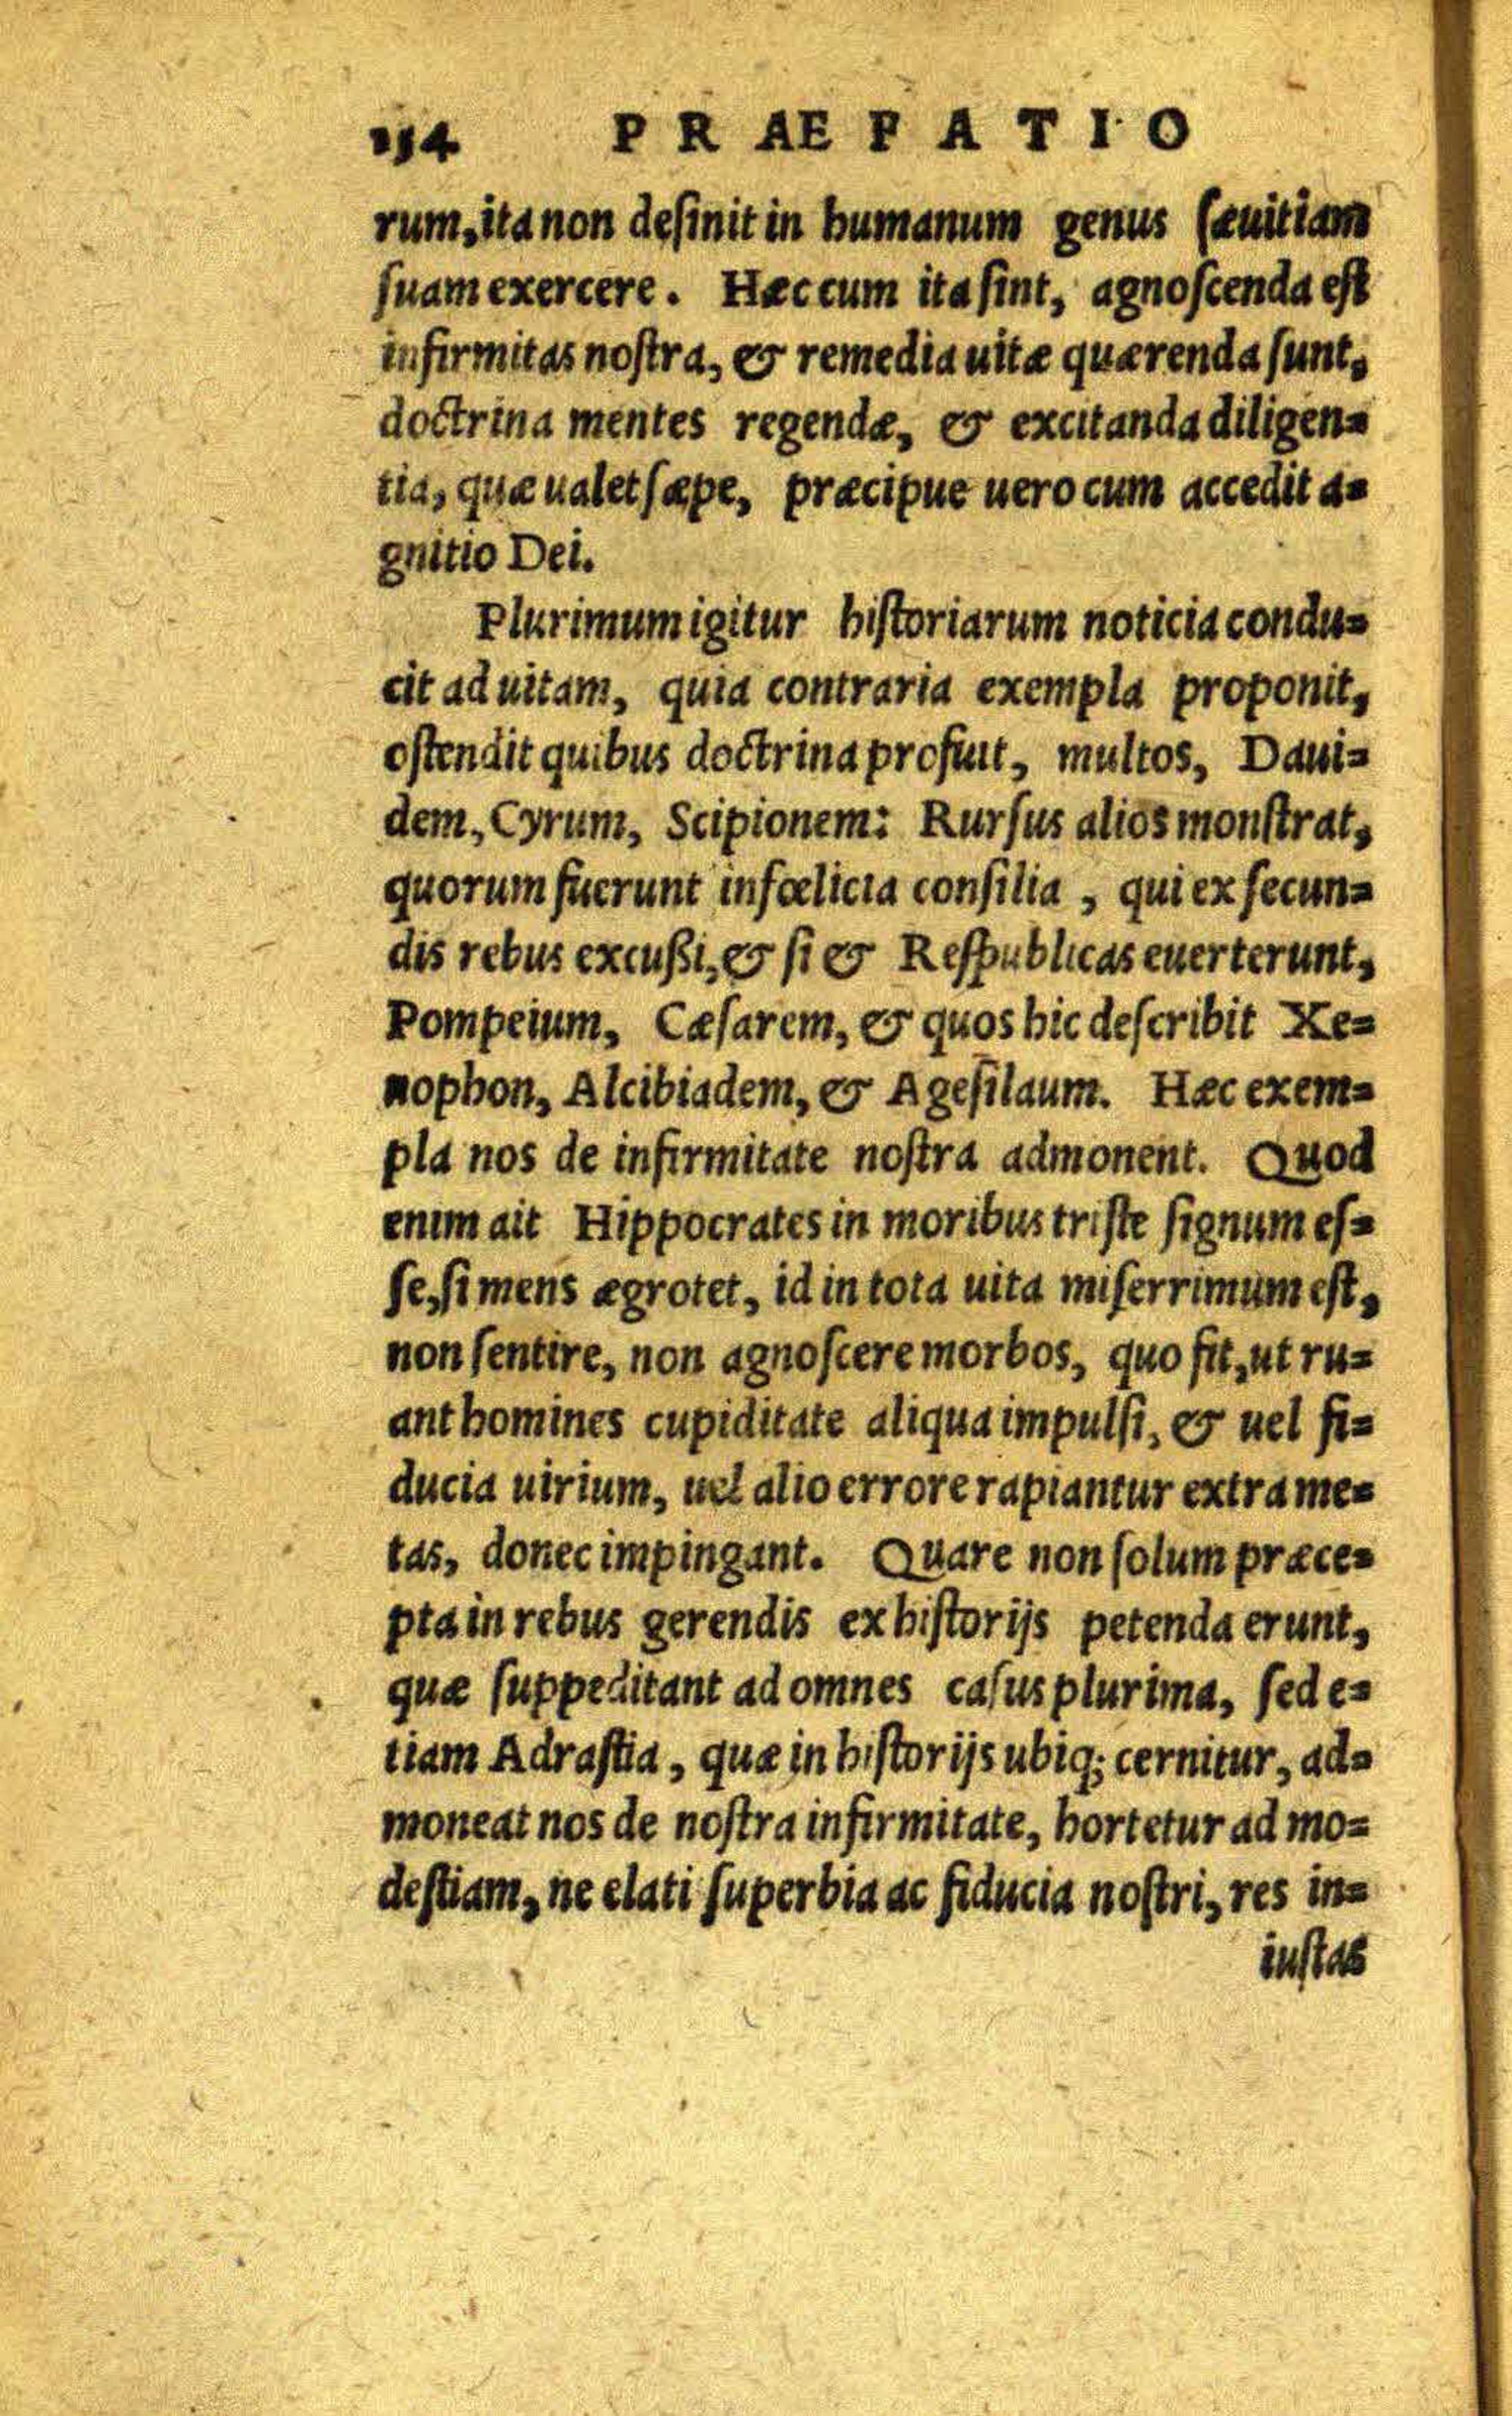 154 PRAEFATIO
rum, ita non deſinit in humanum genus ſæuitiam
ſuam exercere. Hæc cum ita ſint, agnoſcenda eſt
infirmitas noſtra, & remedia uitæ quærenda ſunt,
doctrina mentes regendæ, & excitanda diligen=
tia, quæ ualet ſæpe, præcipue uero cum accedit a=
gnitio Dei.
Plurimum igitur hiſtoriarum noticia condu=
cit ad uitam, quia contraria exempla proponit,
oſtendit quibus doctrina profuit, multos, Daui=
dem, Cyrum, Scipionem: Rurſus alios monſtrat,
quorum fuerunt infœlicia conſilia, qui ex ſecun=
dis rebus excußi, & ſi & Reſpublicas euerterunt,
Pompeium, Cæſarem, & quos hic deſcribit Xe=
nophon, Alcibiadem, & Ageſilaum. Hæc exem=
pla nos de infirmitate noſtra admonent. Quod
enim ait Hippocrates in moribus triſte ſignum eſ=
ſe, ſi mens ægrotet, id in tota uita miſerrimum eſt,
non ſentire, non agnoſcere morbos, quo fit, ut ru=
ant homines cupiditate aliqua impulſi, & uel fi=
ducia uirium, uel alio errore rapiantur extra me=
tas, donec impingant. Quare non ſolum præce=
pta in rebus gerendis ex hiſtorijs petenda erunt,
quæ ſuppeditant ad omnes caſus plurima, ſed e=
tiam Adraſtia, quæ in hiſtorijs ubiq; cernitur, ad=
moneat nos de noſtra infirmitate, hortetur ad mo=
deſtiam, ne elati ſuperbia ac fiducia noſtri, res in=
iuſtas